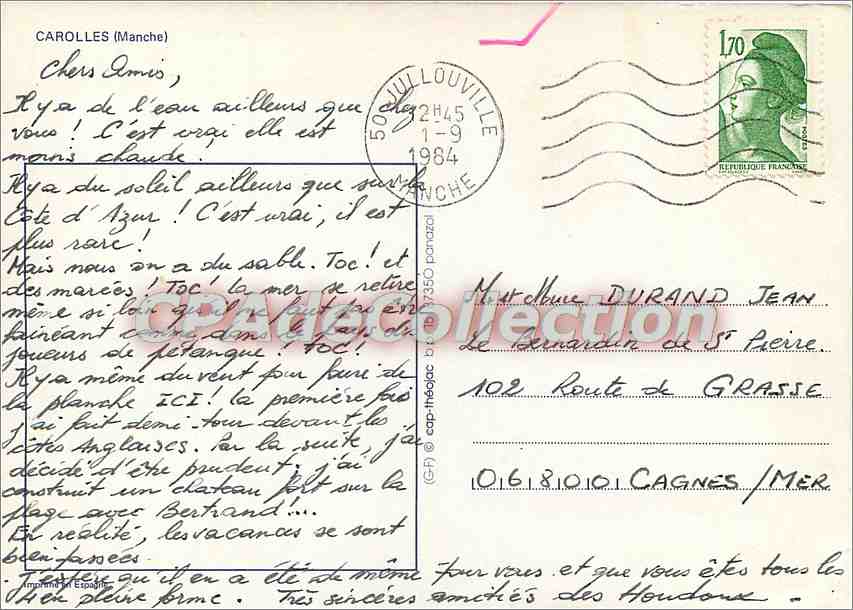 CAROLLES (Manche)
Chers Amis,
Il y a de l'eau ailleurs que chez
vous ! C'est vrai elle est
moins chaude.
Il y a du soleil ailleurs que sur la
Côte d'Azur ! C'est vrai, il est
plus rare !
Mais nous on a du sable. Toc ! et
des marées ! Toc ! la mer se retire
même si loin qu'il ne faut pas être
fainéant comme dans le pays du
joueurs de pétanque ! Toc !
Il y a même du vent pour faire de
la planche ICI ! la première fois
j'ai fait demi-tour devant les
côtes Anglaises. Par la suite, j'ai
décidé d'être prudent : j'ai
construit un chateau fort sur la
plage avec Bertrand....
En réalité, les vacances se sont
bien passées.
J'espère qu'il en a été de même pour vous et que vous êtes tous les
4 en pleine forme. Très sincères amitiés des Houdoux.
Imprimé en Espagne
50 JULLOUVILLE
12H45
1-9
1984
MANCHE
1,70
POSTES
REPUBLIQUE FRANÇAISE
(G-F) © cap-théojac b.p. 87350 panazol
CPAdeCollection
M. et Mme DURAND JEAN
Le Bernardin de St Pierre.
102 Route de GRASSE
06800 CAGNES /MER